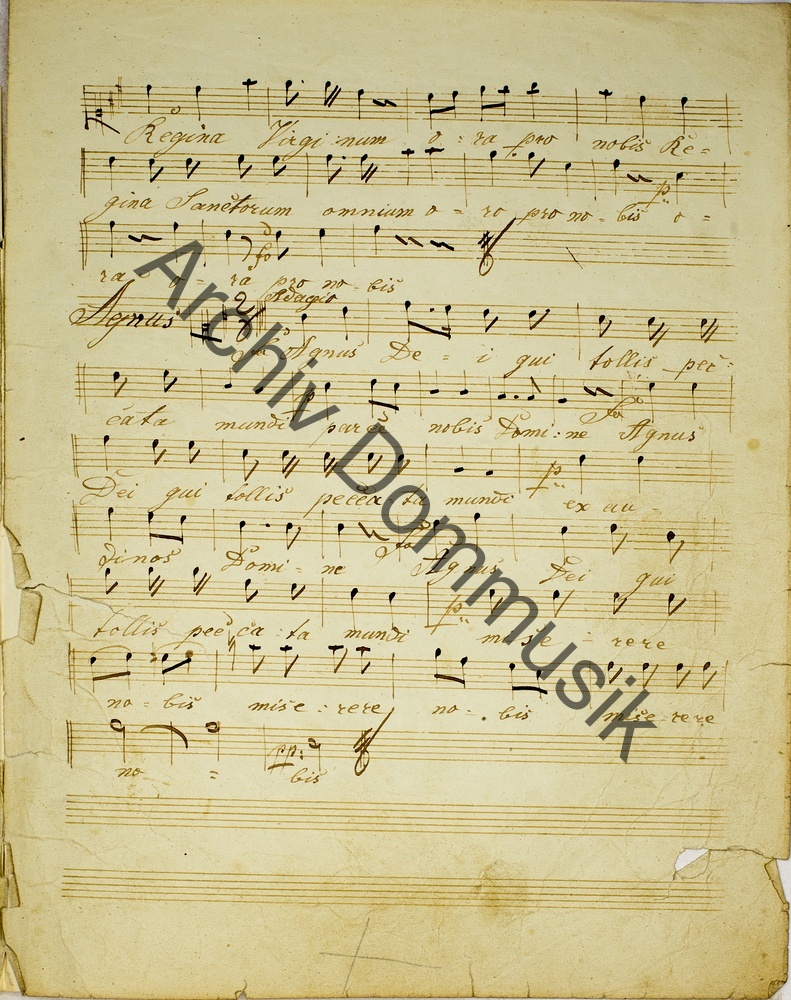 Regina Virginum o: ra pro nobis Re=
gina Sanctorum omnium o = ra pro no - bis o =
p:
ra o - ra pro no - bis
fo
Adagio
Agnus
Agnus De = i qui tollis pec:
cata mundi parce nobis Domi: ne Agnus
p fo
Dei qui tollis pecca - ta mundi ex au -
p:
dinos Domi - ne Agnus Dei qui
fo
tollis pecca: ta mundi mise : rere
p:
no - bis mise: rere no - bis mise - rere
no = bis
pp:
Archiv Dommusik